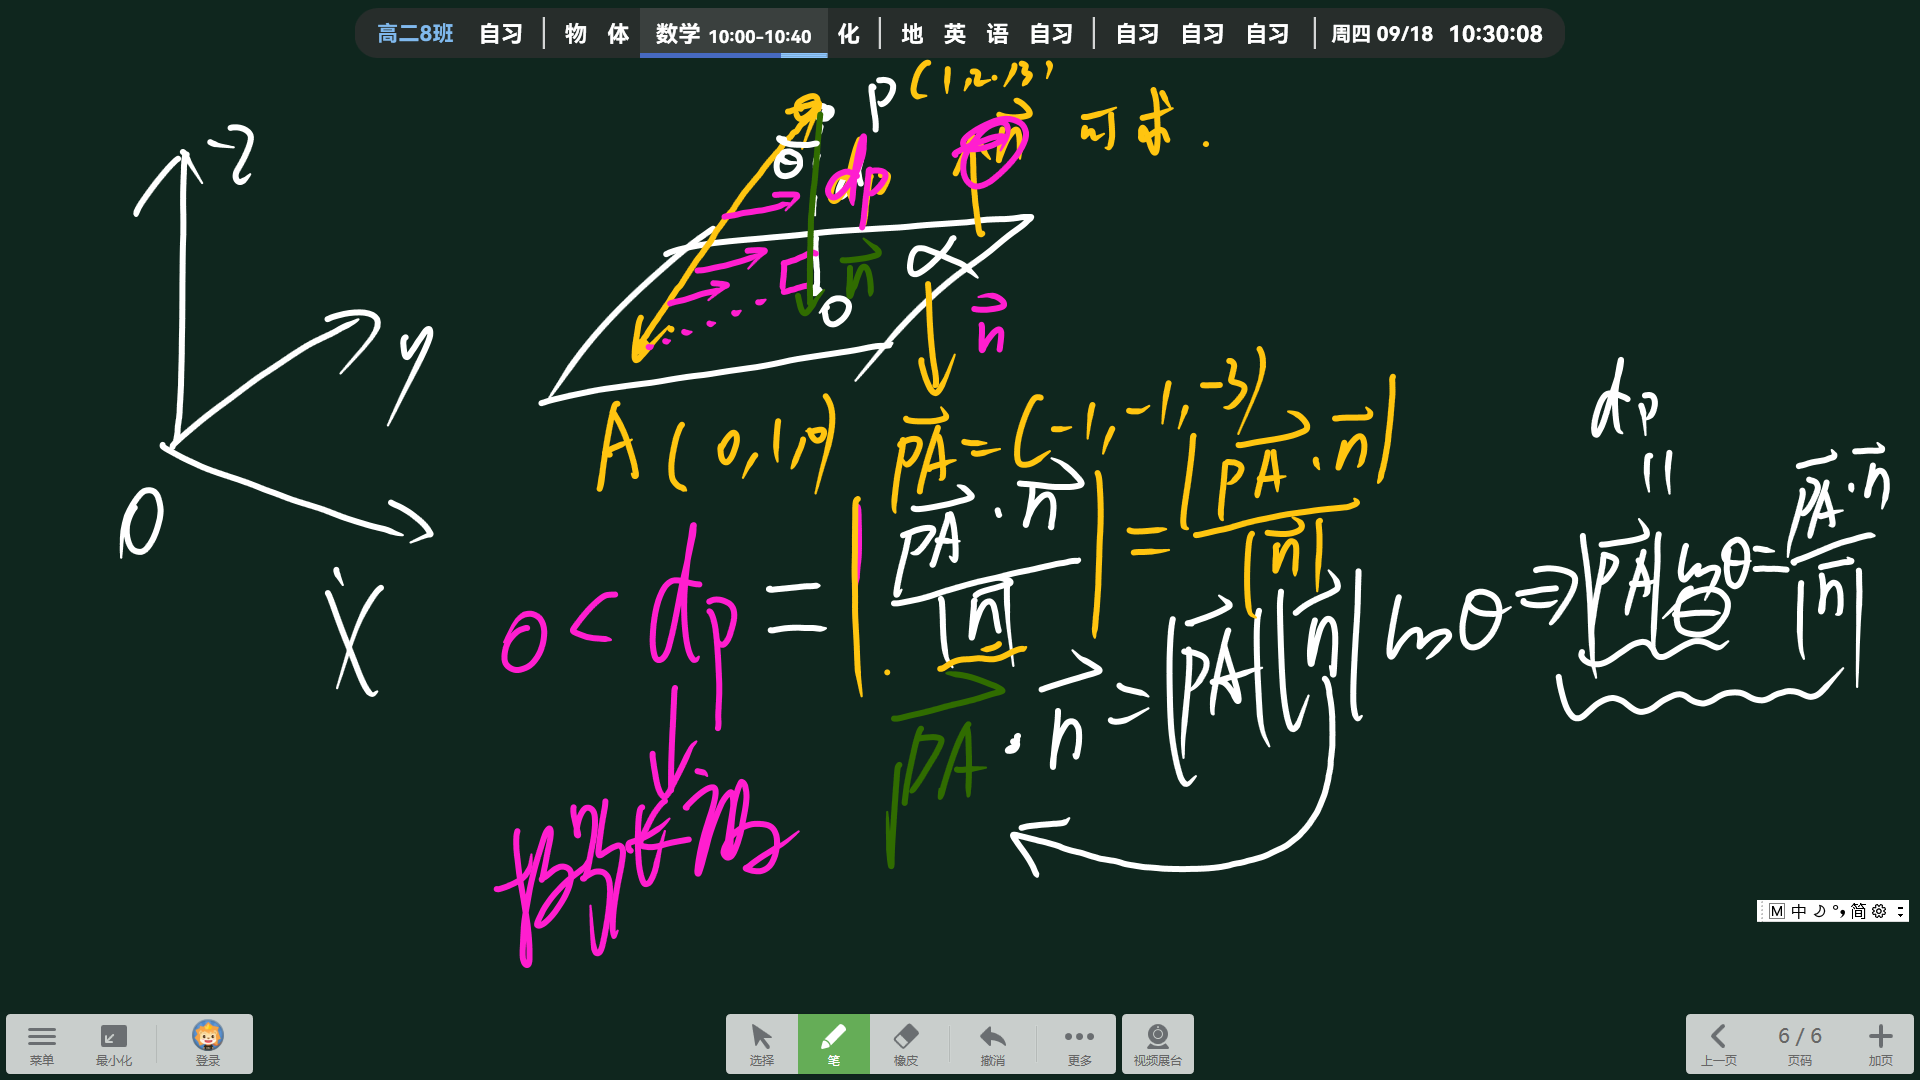 高二8班 自习 | 物 体 数学 10:00-10:40 化 | 地 英 语 自习 | 自习 自习 自习 | 周四 09/18 10:30:08
P (1,2,3)
n 可求.
θ dp
z
n α
O
n
y
A(0,1,0) PA=(-1,-1,-3)
dp
=
0<dp=|PA·n/|n||=|PA·n|/|n|
PA·n=|PA||n|cosθ⇒|PA|cosθ=PA·n/|n|
O
x
M 中 简
菜单 最小化 登录 选择 笔 橡皮 撤消 更多 视频展台 上一页 6 / 6 页码 加页